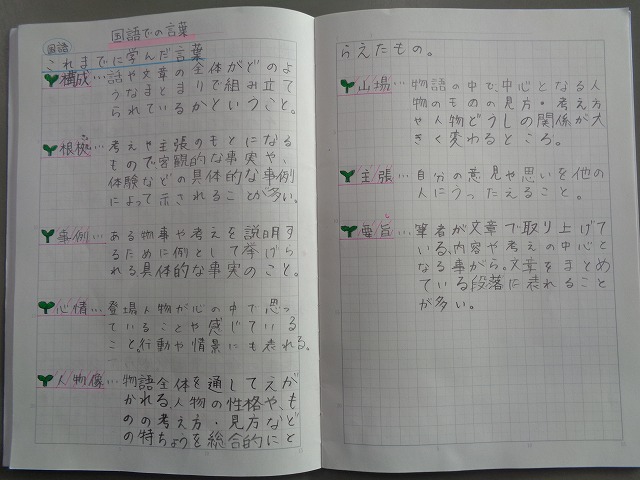 国語での言葉
国語
これまでに学んだ言葉
構成…話や文章の全体がどのよ
うなまとまりで組み立て
られているかということ。
根拠…考えや主張のもとになる
もので客観的な事実や、
体験などの具体的な事例
によって示されることが多い。
事例…ある物事や考えを説明す
るために例として挙げら
れる具体的な事実のこと。
心情…登場人物が心の中で思っ
ていることや感じている
こと。行動や情景にも表れる。
人物像…物語全体を通してえが
かれる、人物の性格や、も
のの考え方・見方など
の特ちょうを総合的にと
らえたもの。
山場…物語の中で、中心となる人
物のものの見方・考え方
や人物どうしの関係が大
きく変わるところ。
主張…自分の意見や思いを他の
人にうったえること。
要旨…筆者が文章で取り上げて
いる、内容や考えの中心と
なる事がら。文章をまとめ
ている段落に表れること
が多い。